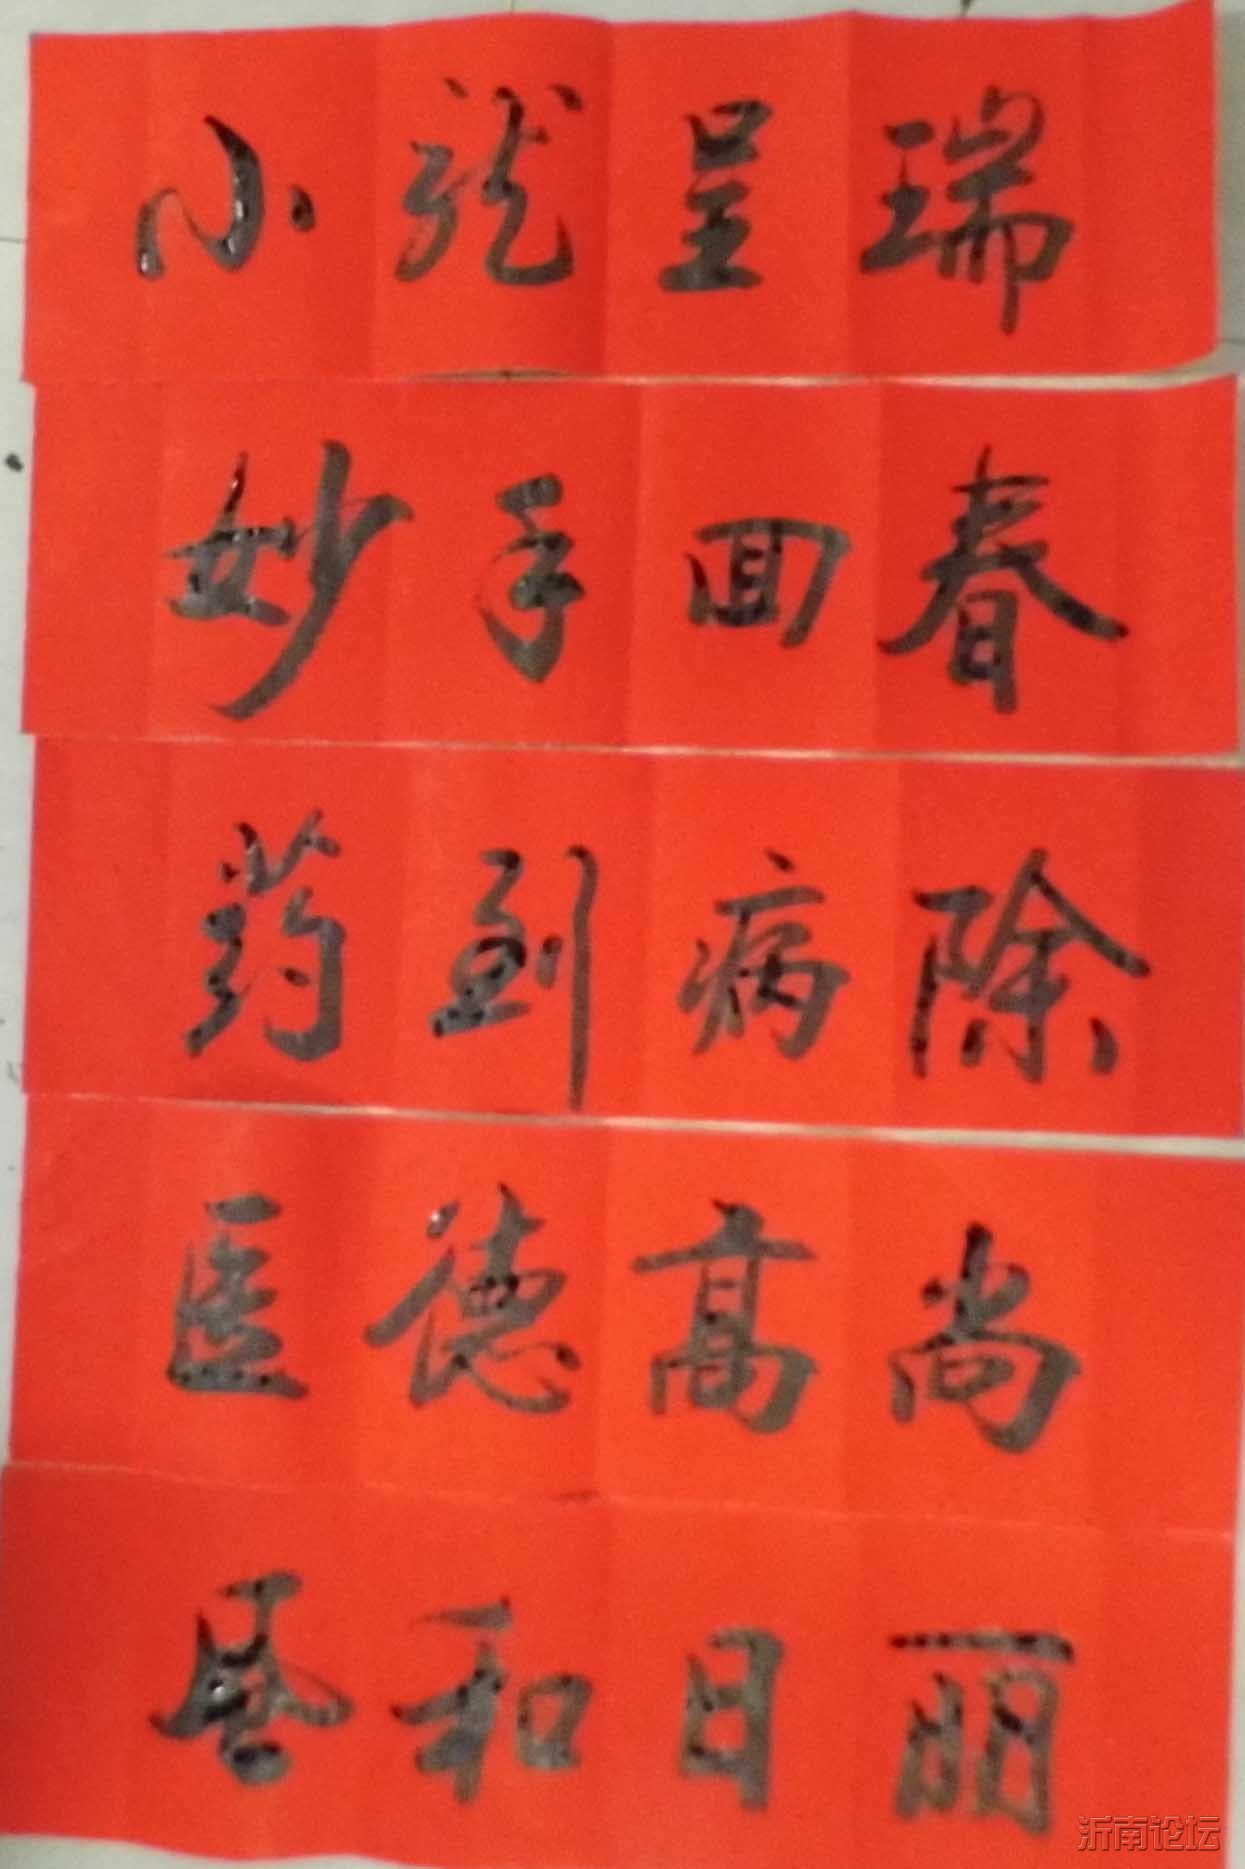 小龍呈瑞
妙手回春
药到病除
医德高尚
和日丽
沂南论坛